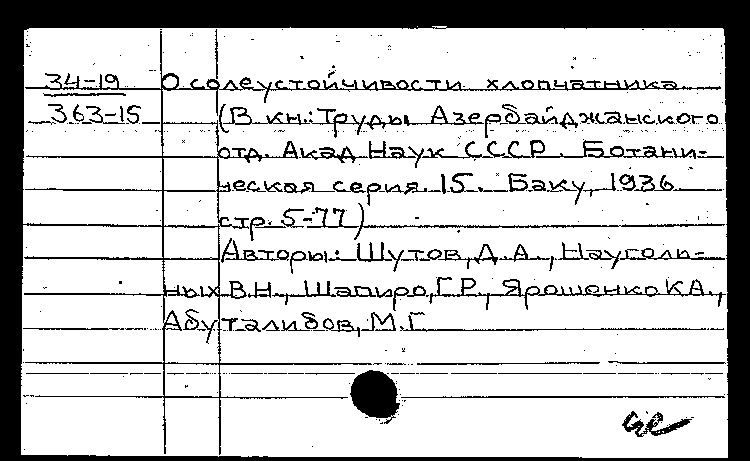 34-19 О солеустойчивости хлопчатника
363-15 (В кн.: Труды Азербайджанского
отд. Акад Наук СССР. Ботани-
ческая серия. 15. Баку, 1936
стр. 5-77)
Авторы: Шутов, Д. А., Науголь-
ных В.Н., Шапиро, Г.Р., Ярошенко К.А.,
Абуталибов, М.Г.